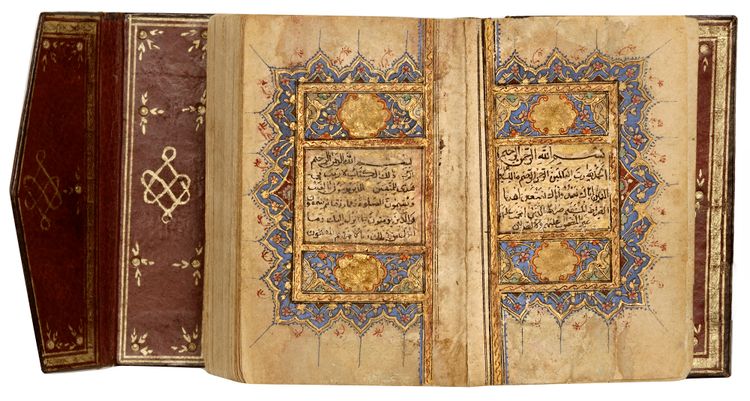 بسم الله الرحمن الرحيم
الحمد لله رب العالمين الرحمن الرحيم ملك يوم
الدين اياك نعبد واياك نستعين اهدنا
الصراط المستقيم صراط الذين انعمت عليهم
غير المغضوب عليهم ولا الضالين
بسم الله الرحمن الرحيم
الم ذلك الكتاب لا ريب فيه
هدى للمتقين الذين يؤمنون بالغيب
ويقيمون الصلوة ومما رزقناهم ينفقون
والذين يؤمنون بما انزل اليك وما
انزل من قبلك وبالاخرة هم يوقنون